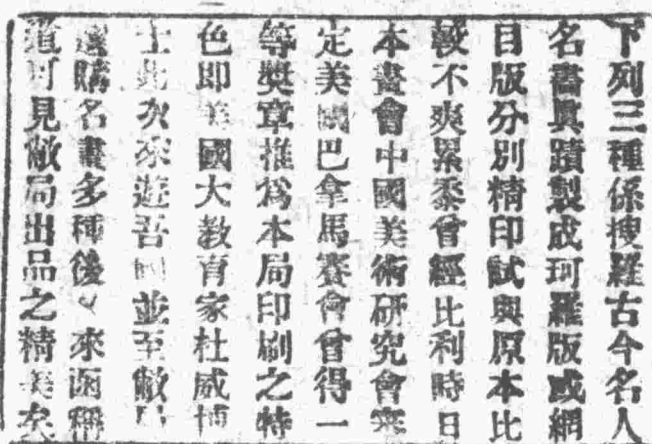 下列三種係搜羅古今名人
名書眞蹟製成珂羅版或網
目版分別精印試與原本比
較不爽累黍曾經比利時日
本畫會中國美術研究會審
定美國巴拿馬賽會曾得一
等獎章推爲本局印刷之特
色即美國大教育家杜威博
士此次來遊吾國並至敝局
選購名畫多種後 來函稱
道可見敝局出品之精美矣